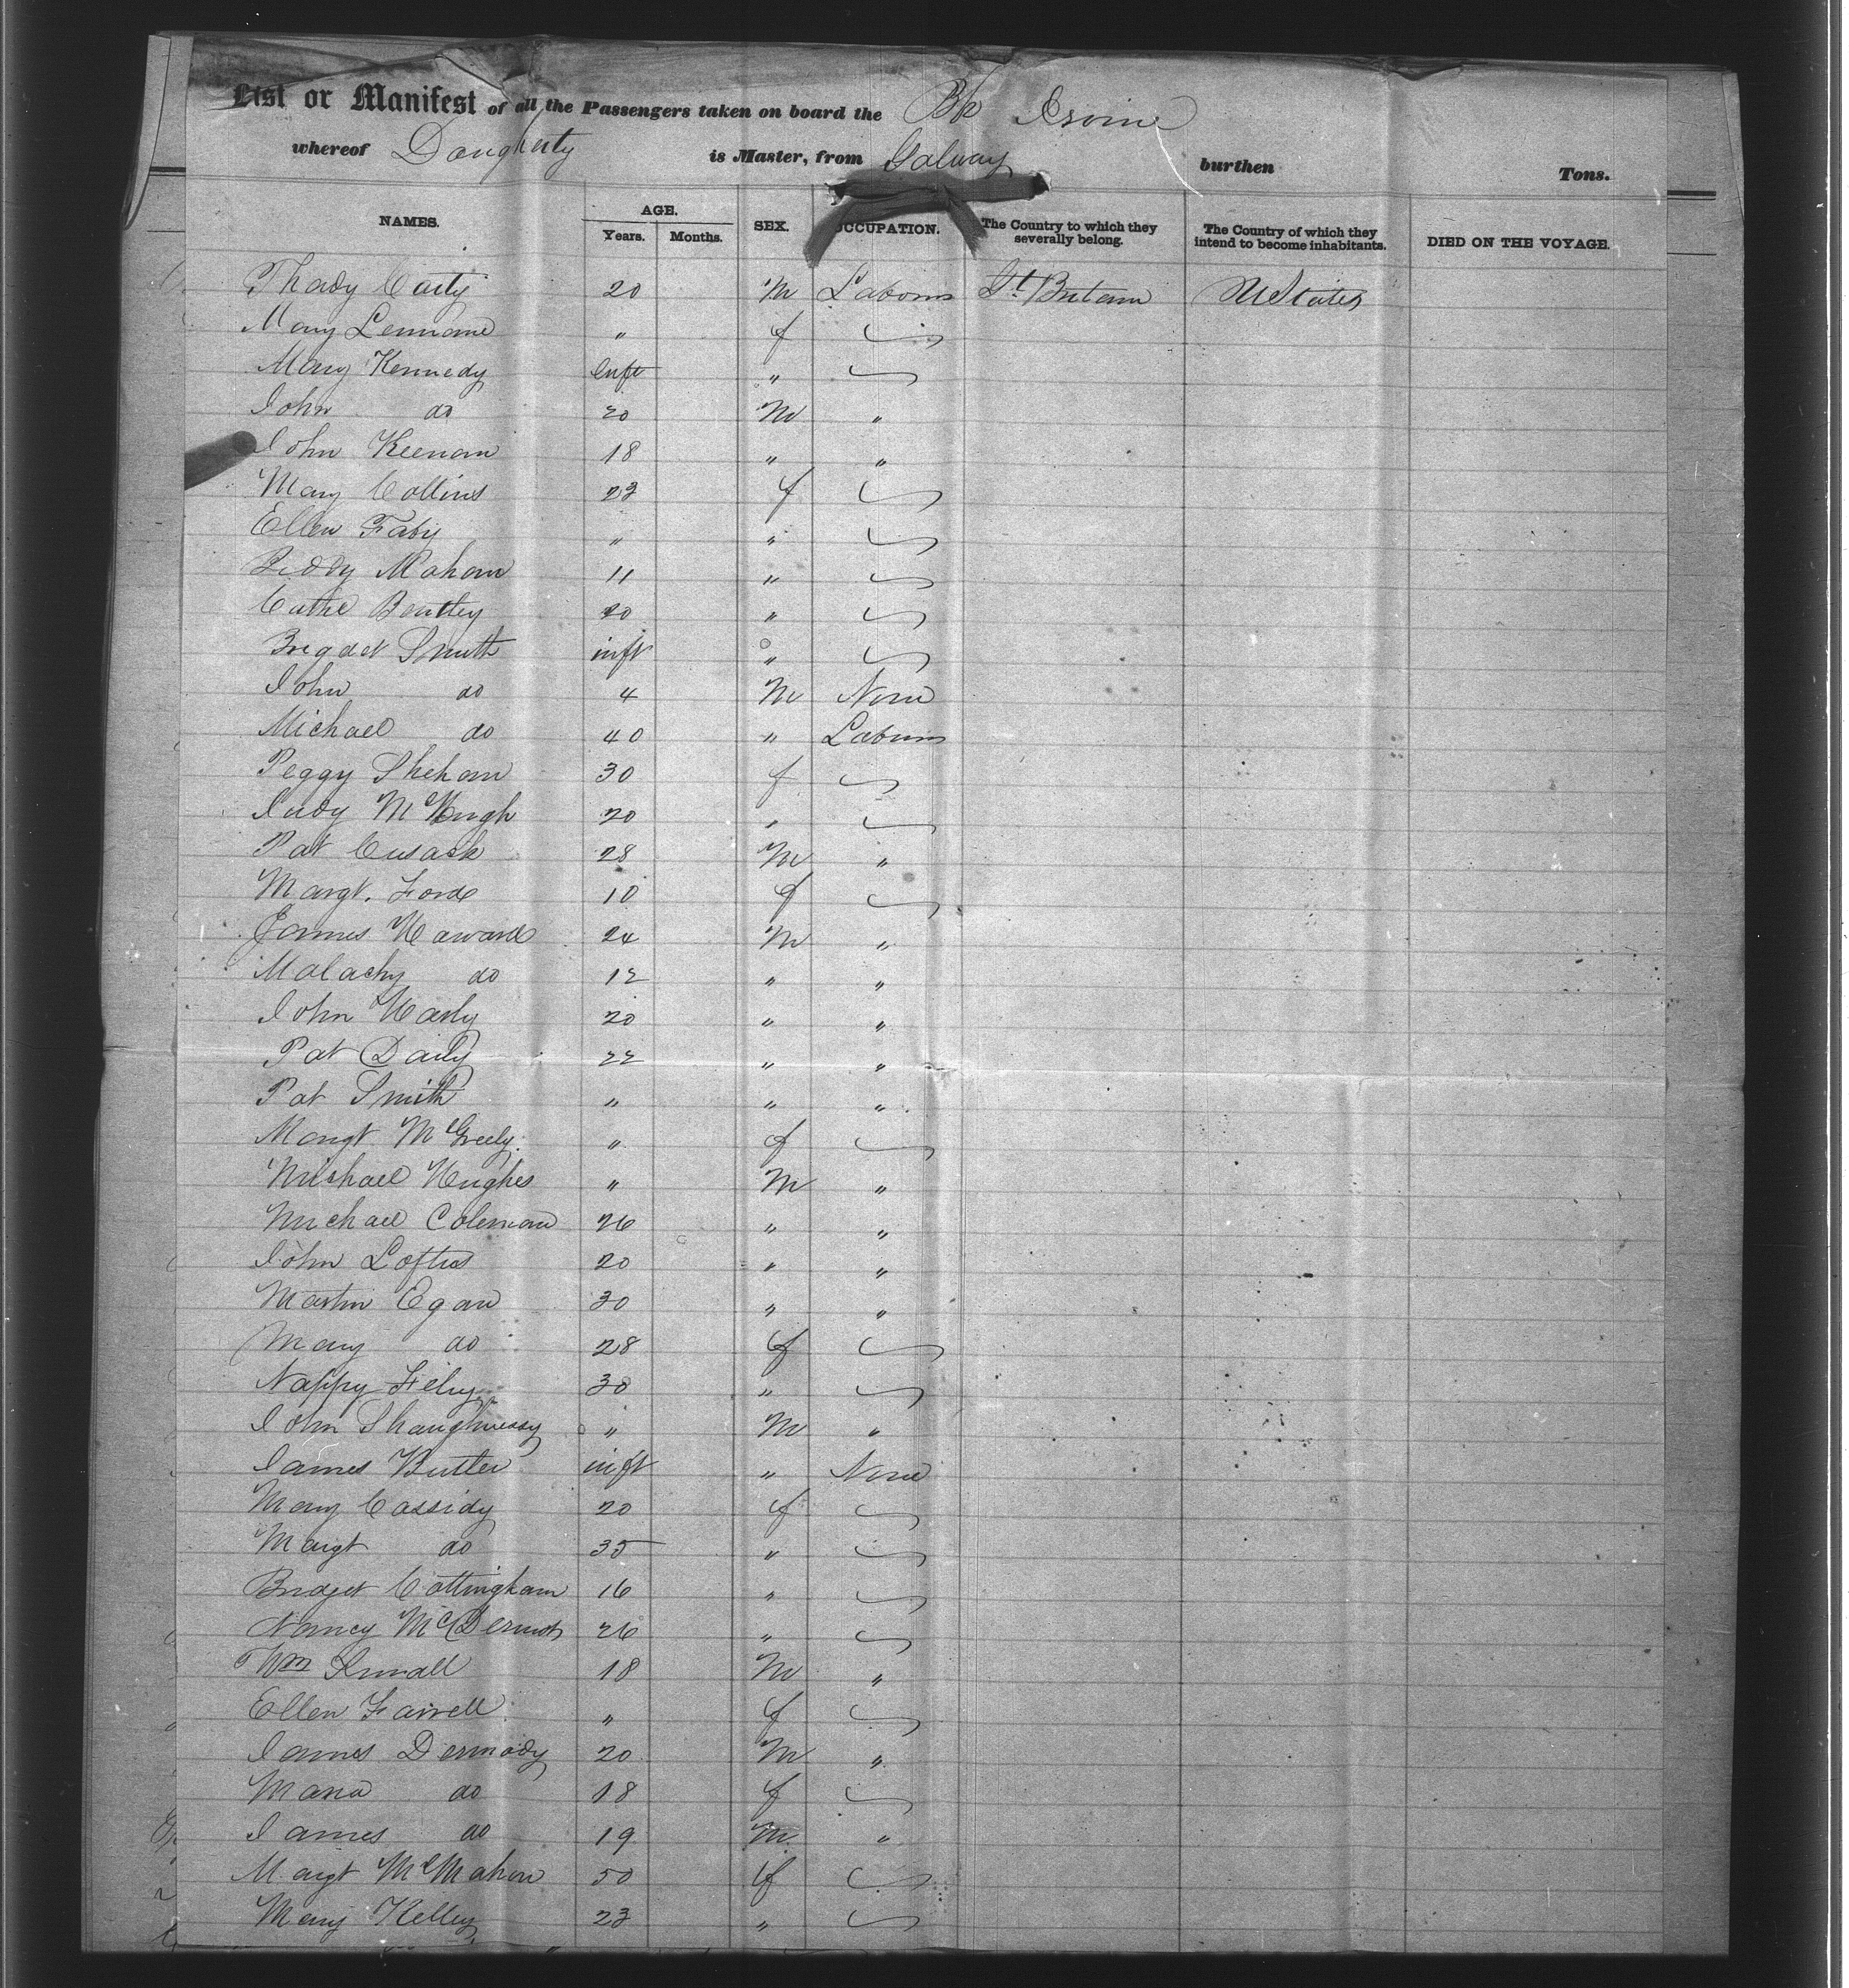 List or Manifest of all the Passengers taken on board the Bk Irvine
whereof Dougherty is Master, from Galway burthen Tons.
NAMES. AGE. SEX. OCCUPATION. The Country to which they severally belong. The Country of which they intend to become inhabitants. DIED ON THE VOYAGE.
Years. Months.
Thady Carty 20 M Laborer Gt Britain U States
Mary Lennane " f
Mary Kennedy Inft "
John do 20 M "
John Keenan 18 " "
Mary Collins 23 f
Ellen Fahy " "
Biddy Mahon 11 "
Cathe Bentley 20 "
Bridget Smith inft "
John do 4 M None
Michael do 40 " Laborer
Peggy Shehan 30 f
Judy McHugh 20 "
Pat Cusack 28 M "
Margt. Forde 10 f
James Haward 24 M "
Malachy do 12 " "
John Harly 20 " "
Pat Daily 22 " "
Pat Smith " " "
Margt McGreely " f
Michael Hughes " M "
Michael Coleman 26 " "
John Loftus 20 " "
Martin Egan 30 " "
Mary do 28 f
Nappy 30 "
John Shaughnessy " M "
James Butler inft " None
Mary Cassidy 20 f
Margt do 35 "
Bridget Cottingham 16 "
Nancy McDermot 26 "
Wm 18 M "
Ellen Farrell " f
James Dermody 20 M "
Maria do 18 f
James do 19 M "
Margt McMahon 50 f
Mary Kelley 23 "